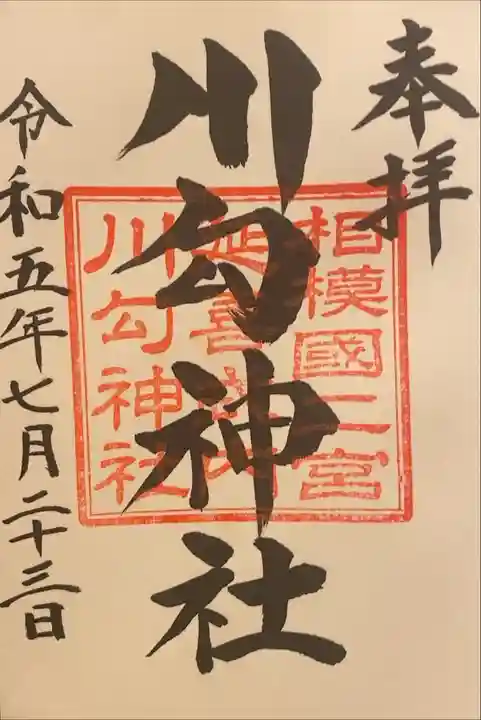 奉拝
川勾神社
相模國二宮
延喜式内
川勾神社
令和五年七月二十三日